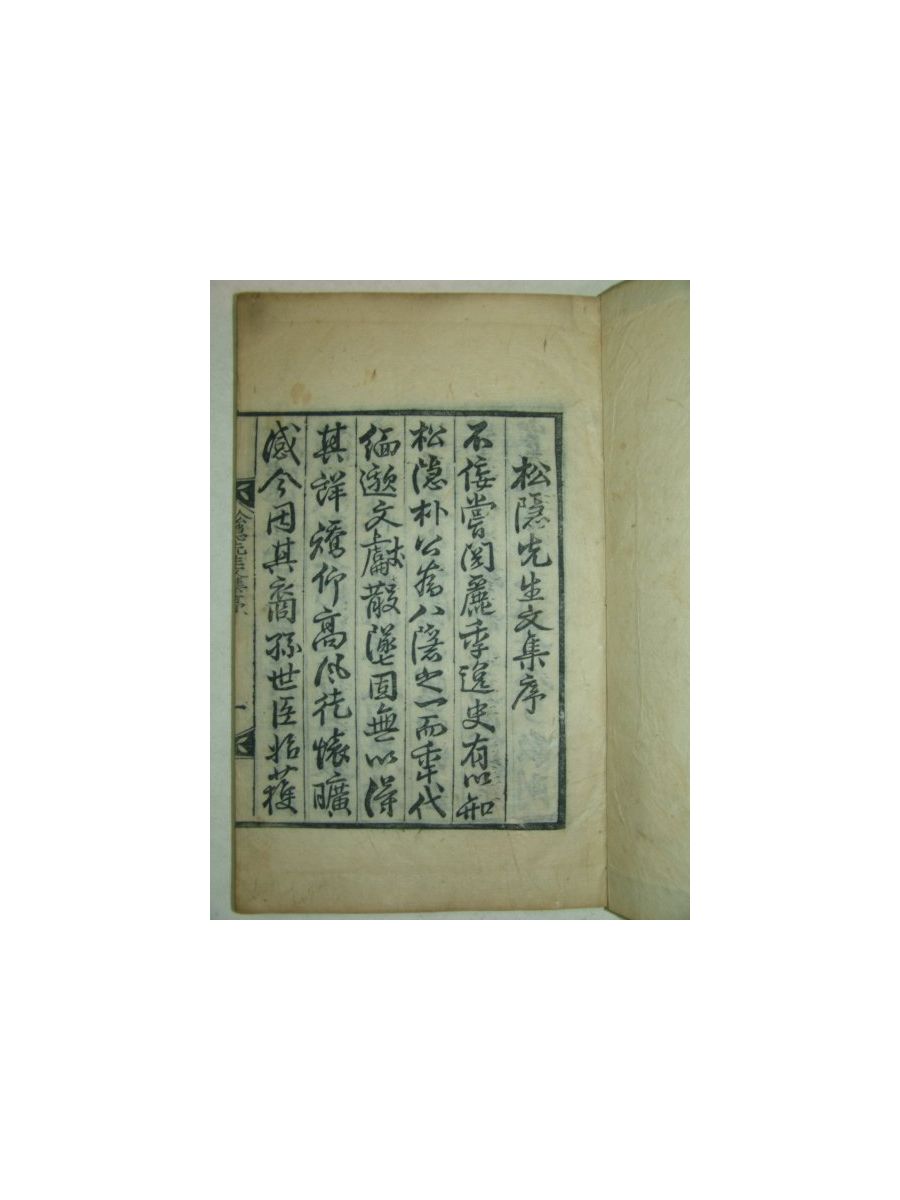 松隱先生文集序
不佞嘗閱麗季逸史有以知
松隱朴公爲八隱之一而年代
緬邈文獻散墜固無以得
其詳矯仰高风徒懷曠
感今因其裔孫世臣始獲
松隱先生文集序
一